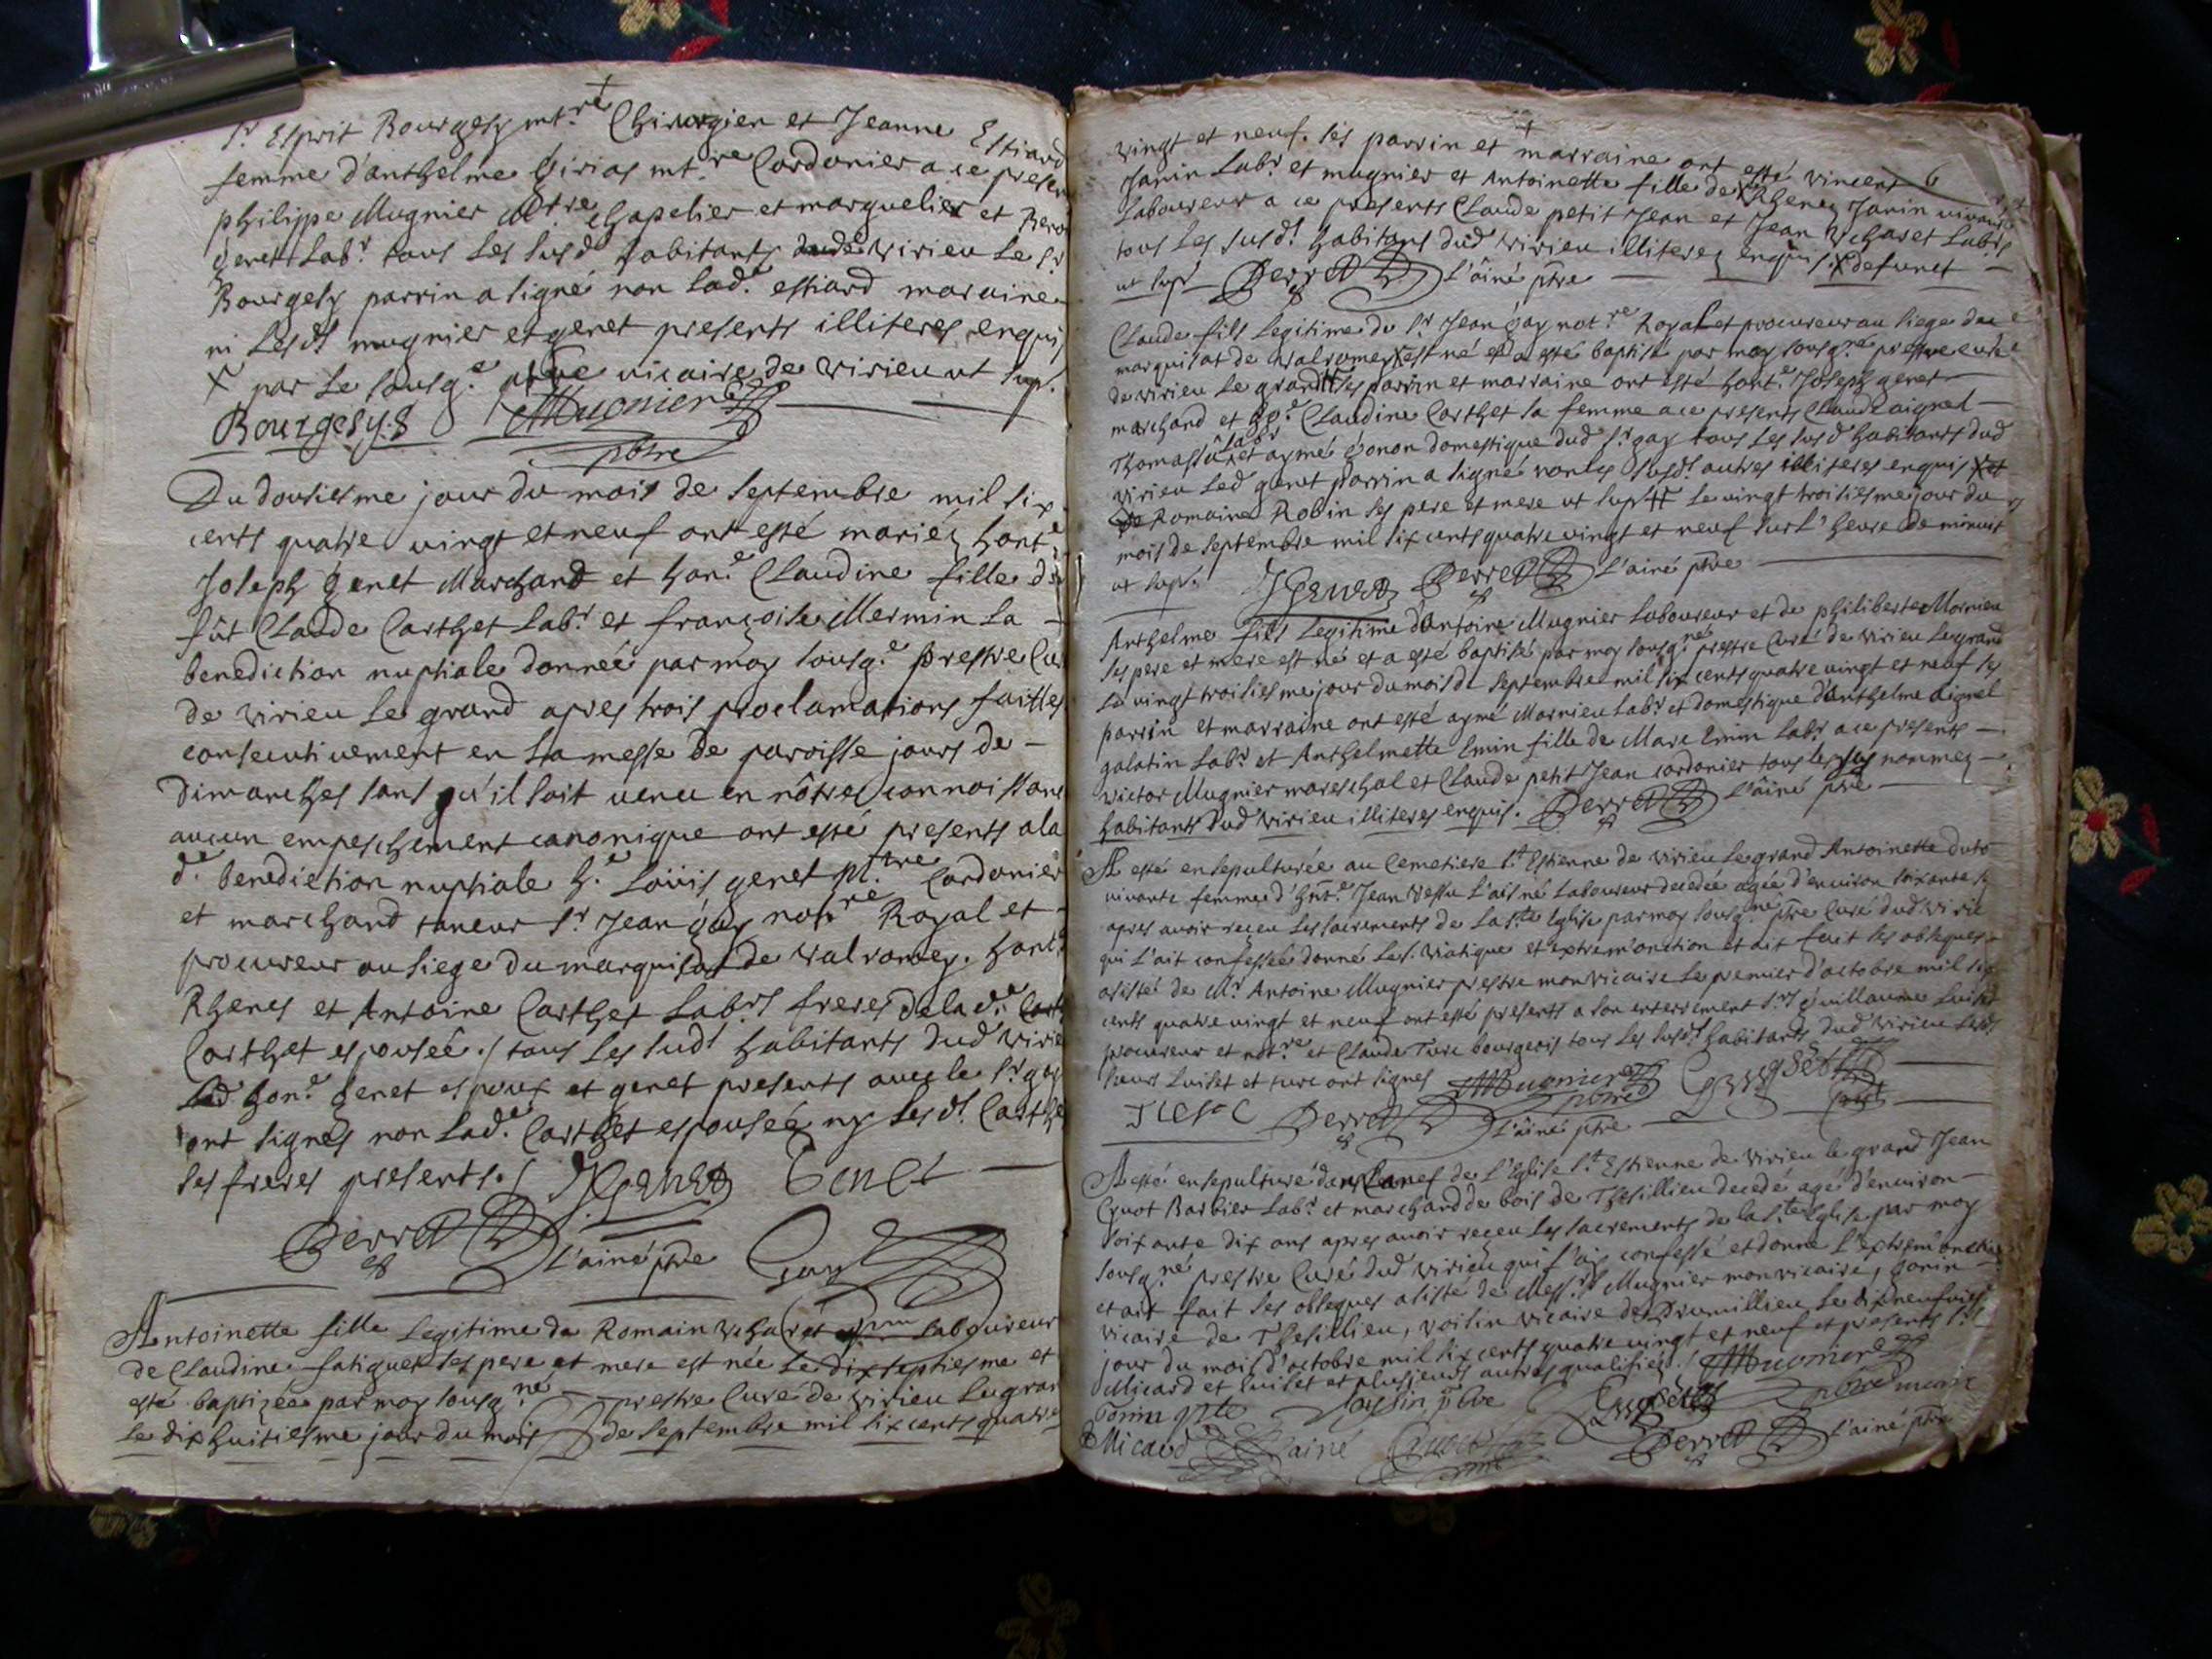 Sr Esprit Bourgesy mtre Chirurgien et Jeanne Estiard
femme d'anthelme Girias mtre Cordonier a ce presen
philippe Mugnier Mtre Chapelier et marguelier et
genet Labr tous les susd habitants dud Virieu Le Sr
Bourgesy parrin a signé non Lade estiard maraine
ni Lesdt mugnier et genet presents illiteres enquis
X par Le sousge ptre vicaire de Virieu ut supr.
Bourgesy Mugnier
pbtre
Du dousiesme jour du mois de Septembre mil six
cents quatre vingt et neuf ont esté mariéz honte
Joseph Genet Marchand et hone Claudine fille de
fût Claude Carthet Labr et françoise Mermin La
benediction nuptiale donnée par moy sousge prestre Cu
de Virieu Le grand apres trois proclamations faittes
consecutivement en la messe de paroisse jours de
Dimanches sans qu'il soit venu en nôtre connoissanc
aucun empeschement canonique ont esté presents a la
de benediction nuptiale h. Loüis genet mtre Cordonier
et marchand taneur Sr Jean gay notre Royal et
procureur au siege du marquisat de Valromey. hont
Rhenes et Antoine Carthet Labrs freres de la de
Carthet espousée ./ tous Les sudt habitants dud Virie
Led hone Genet espoux et genet presents avec le Sr gay
ont signés non Lade Carthet espousée ny Lesdt Carthe
ses freres presents. / JGenet Genet
Perret L'ainé ptre Gay
Antoinette fille Legitime de Romain Vcharet Laboureur
de Claudine fatiguet ses pere et mere est née Le dix septiesme et
esté baptizée par moy sousgné prestre Curé de Virieu Le gran
Le dix huitiesme jour du mois de Septembre mil six cents quatre
vingt et neuf. ses parrin et marraine ont esté Vincent 6
Janin Labr et mugnier et Antoinette fille de X Rhenez Janin vivant
Laboureur a ce presents Claude petit Jean et Jean Vcharet Labrs
tous Les susdt habitans dud Virieu illiterez enquis. X defunct
ut supr Perret L'âiné ptre
Claude fils Legitime du Sr Jean gay notre Royal et procureur au siege du
marquisat de Valromey X est né et a esté baptisé par moy sousgné prestre curé
de Virieu Le grand ses parrin et marraine ont esté honte Joseph genet
marchand et Claudine Carthet sa femme a ce presents Claude aignel
Thomassû Labr et aymé gonon domestique dud Sr gay tous Les susd habitants dud
Virieu Led genet parrin a signé non Les susdt autres illiteres enquis X et
de Romaine Robin ses pere et mere ut sup Le vingt troisiesme jour du
mois de Septembre mil six cents quatre vingt et neuf sur L'heure de minuit
ut supr. JGenet Perret L'ainé ptre
Anthelme fils Legitime d'Antoine Mugnier Laboureur et de philiberte Mornieu
ses pere et mere est né et a esté baptisé par moy sousgné prestre Curé de Virieu Le grand
Le vingt troisiesme jour du mois de Septembre mil six cents quatre vingt et neuf ses
parrin et marraine ont esté aymé Mornieu Labr et domestique d'Anthelme aignel
galatin Labr et Anthelmette Emin fille de Marc Emin Labr a ce presents
Victor Mugnier mareschal et Claude petit Jean cordonier tous les sus nommez
habitants dud Virieu illiteres enquis. Perret L'âiné ptre
A esté ensepulturée au Cemetiere St Estienne de Virieu Le grand Antoinette
vivante femme d'hnte Jean Vessu L'aisné Laboureur decedée agée d'environ soixante
apres avoir reçeu Les sacrements de La Ste Eglise par moy sousgné ptre Curé dud Virie
qui L'ait confessée donné Le S. Viatique et extrem'onction et ait fait ses obseques
asisté de Mr Antoine Mugnier prestre mon vicaire Le premier d'octobre mil six
cents quatre vingt et neuf ont esté presents a son enterrement Srs guillaume Luiset
procureur et notre et Claude Turc bourgeois tous Les susdt habitants dud Virieu Lesdt
sieurs Luiset et turc ont signes Mugnier pbtre
Turc Perret L'âiné ptre
A esté ensepulturé dans La nef de L'Eglise St Estienne de Virieu le grand Jean
Cyvot Barbier Labr et marchand de bois de Thesillieu decedé agé d'environ
soixante dix ans apres avoir reçeu Les sacrements de La Ste Eglise par moy
sousgné prestre Curé dud Virieu qui L'ay confessé et donné L'extrem'onction
et ait fait ses obseques asisté de Messrs Mugnier mon vicaire, Gonin
vicaire de Thesillieu, Voisin vicaire de Le dix neufvies
jour du mois d'octobre mil six cents quatre vingt et neuf et presents Srs
Micard et Luiset et plusieurs autres qualifiéz ./ Mugnier
Voysin ptre
Micaud ainé Perret L'ainé ptre